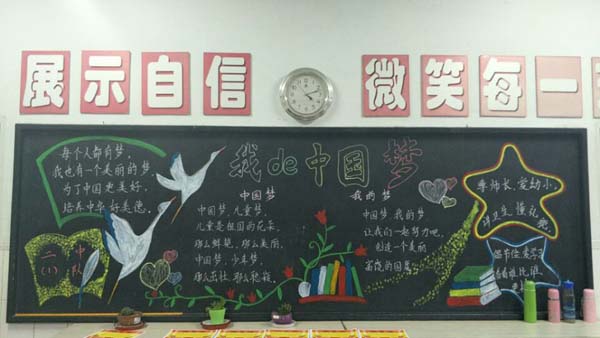 展示自信 微笑每一
我de中国梦
每个人都有梦，
我也有一个美丽的梦，
为了中国更美好，
培养中华好美德。
二(1)中队
中国梦
中国梦，儿童梦，
儿童是祖国的花朵，
那么鲜艳，那么美丽，
中国梦，少年梦，
那么茁壮，那么艳丽。
我的梦
中国梦 我的梦
让我们一起努力吧，
创造一个美丽
富饶的国度。
尊师长，爱幼小，
讲卫生，懂礼貌，
倡节俭，爱学习，
看看谁比谁